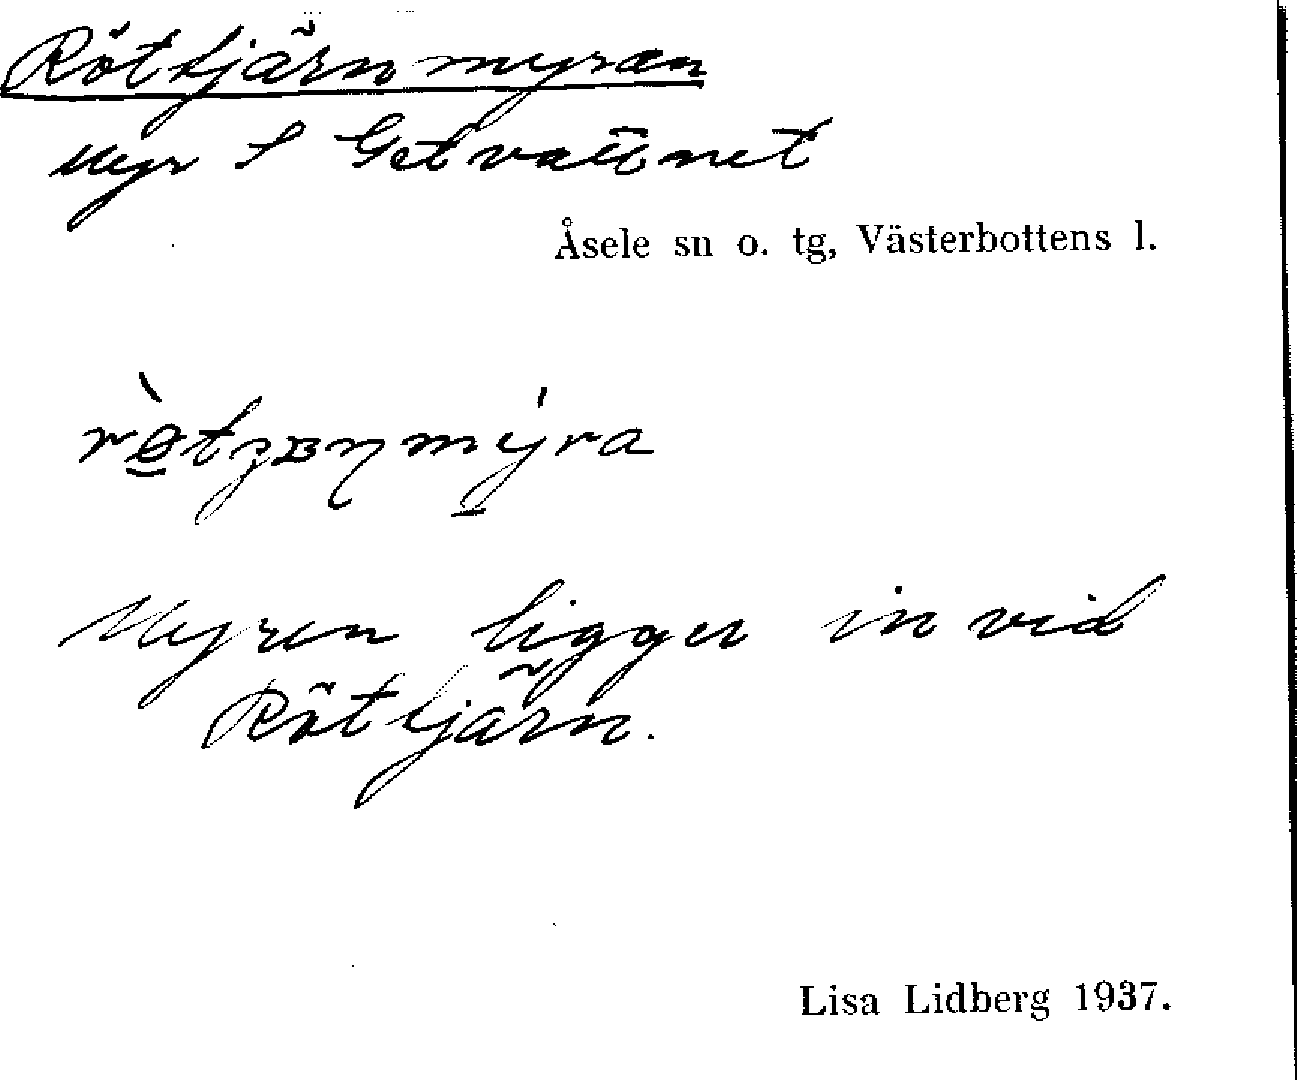 Röttjärnmyran
Myr S Getvattnet
Åsele sn o. tg, Västerbottens l.
Myren ligger invid
Röttjärn.
Lisa Lidberg 1937.